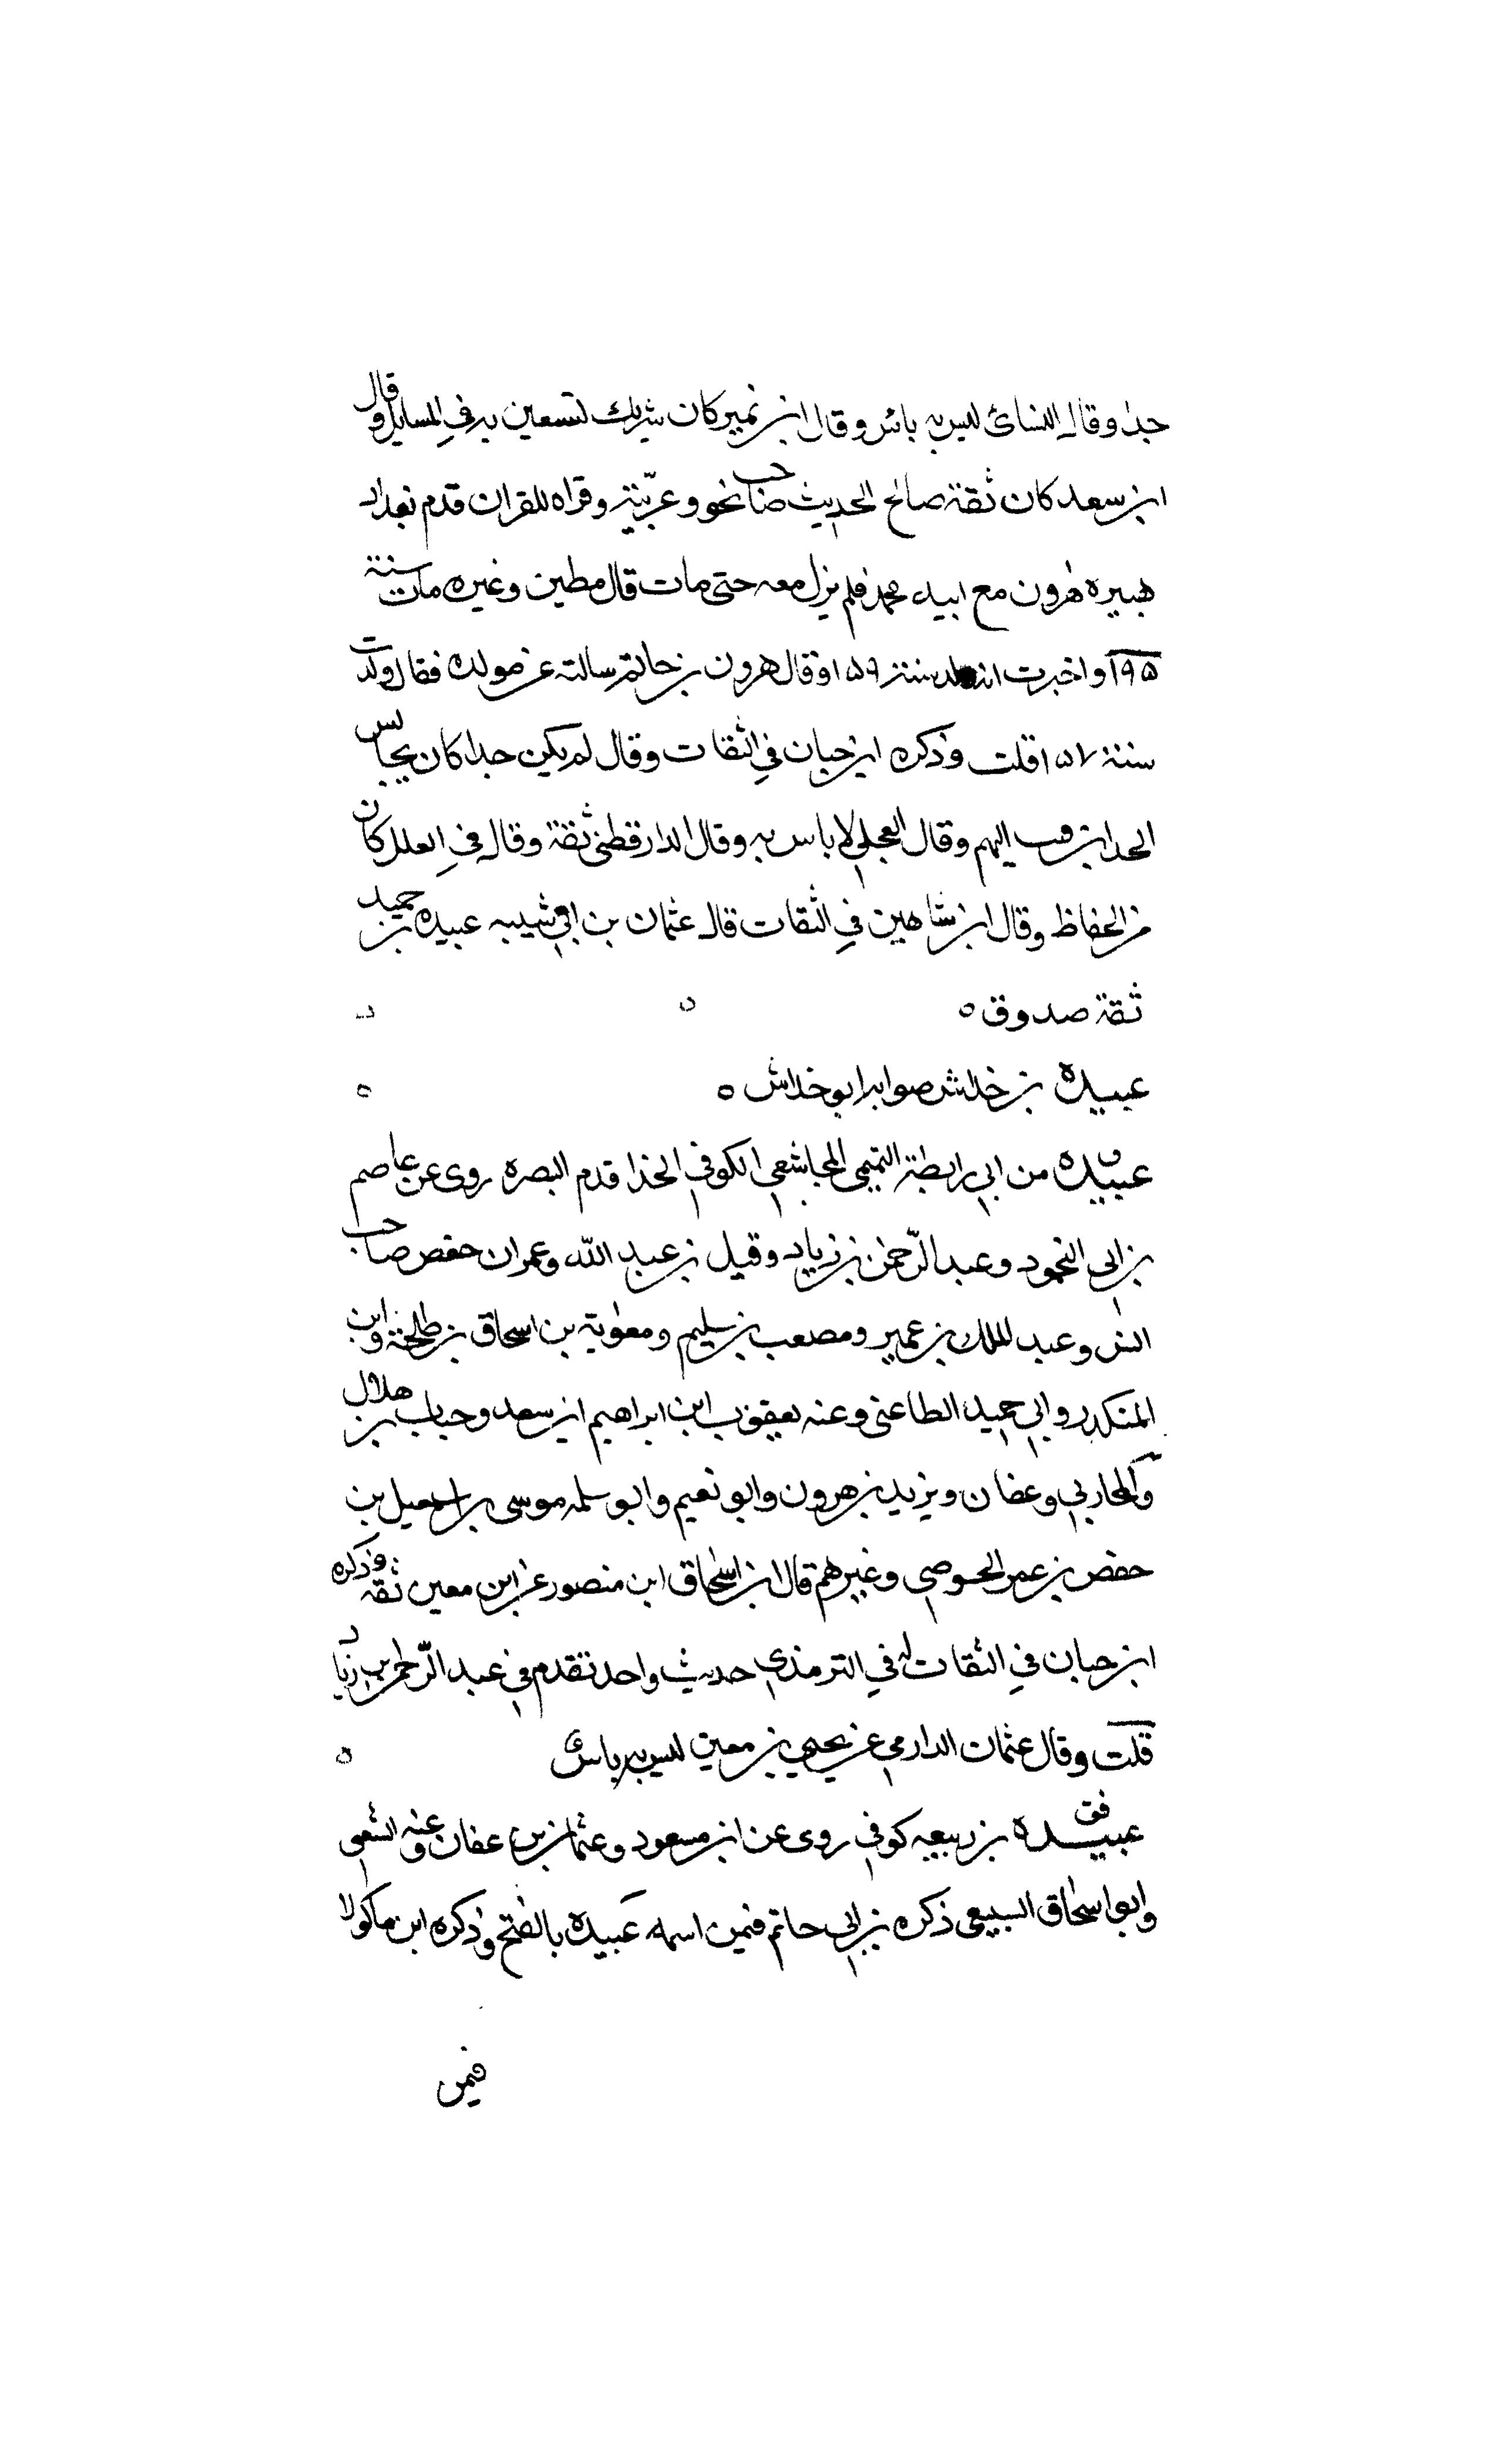 جدا وقال النسائ ليس به باس وقال ابن نمير كان شريك تستعين به في المسايل وقال
ابن سعد كان ثقة صالح الحديث صاحب نحو وعربية وقراه للقران قدم بغداد
هبيره هرون مع ابيه محمد فلم يزل معه حتى مات قال مطين وغيره مات سنة
١٩٥ واخبرت انه ولد سنة ١٥٩ وقال هرون بن حاتم سالته عن مولده فقال ولدت
سنة ١٥٧ قلت وذكره ابن حبان في الثقات وقال لم يكن حدا كان يجالس
الحدايين فنسب اليهم وقال العجلي لا باس به وقال الدارقطني ثقة وقال في العلل كان
من الحفاظ وقال ابن شاهين في الثقات قال عثمان بن ابي شيبه عبيده بن حميد
ثقة صدوق ه
عبيدة بن خداش صوابه ابو خداش ه
عبيدة من ابي رابطة التميمي المجاشعي الكوفي الحذا قدم البصره روى عن عاصم
بن ابي النجود وعبد الرحمن بن زياد وقيل بن عبد الله وعمران حفص صاحب
انس وعبد الملك بن عمير ومصعب بن سليم ومعوية بن اسحاق بن طلحة وابن
المنكدر وابي حميد الطاعني وعنه يعقوب ابن ابراهيم ابن سعد وحباب بن هلال
والمحاربي وعفان ويزيد بن هرون وابو نعيم وابو سلمه موسى بن اسمعيل بن
حفص بن عمر الحوصي وغيرهم قال ابن اسحاق ابن منصور عن ابن معين ثقه وذكره
ابن حبان في الثقات له في الترمذي حديث واحد تقدم في عبد الرحمن بن زياد
قلت وقال عثمان الدارمي عن يحيي بن معين ليس به باس
عبيدة بن ربيعه كوفي روى عن ابن مسعود وعثمان بن عفان وعنه الشعبي
وابو اسحاق السبيعي ذكره بن ابي حاتم فيمن اسمه عبيدة بالفتح وذكره ابن ماكولا
فيمن